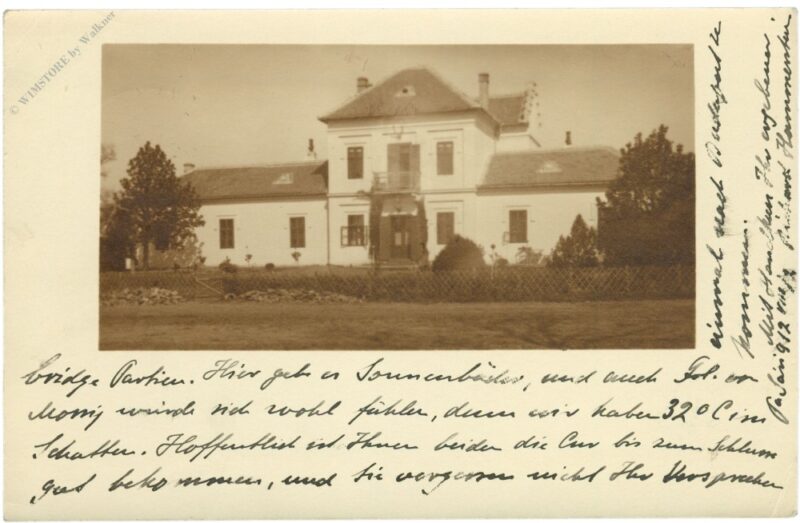 © WIMSTORE by Walkner
bridge Partien. Hier gibt es Sonnenbäder, und auch Frl. von
würde sich wohl fühlen, denn wir haben 32° C im
Schatten. Hoffentlich ist Ihnen beiden die Cur bis zum Schluss
gut bekommen, und Sie vergessen nicht Ihr Versprechen
einmal nach Budapest zu
kommen.
Mit Handkuss Ihr ergebener
912 Richard